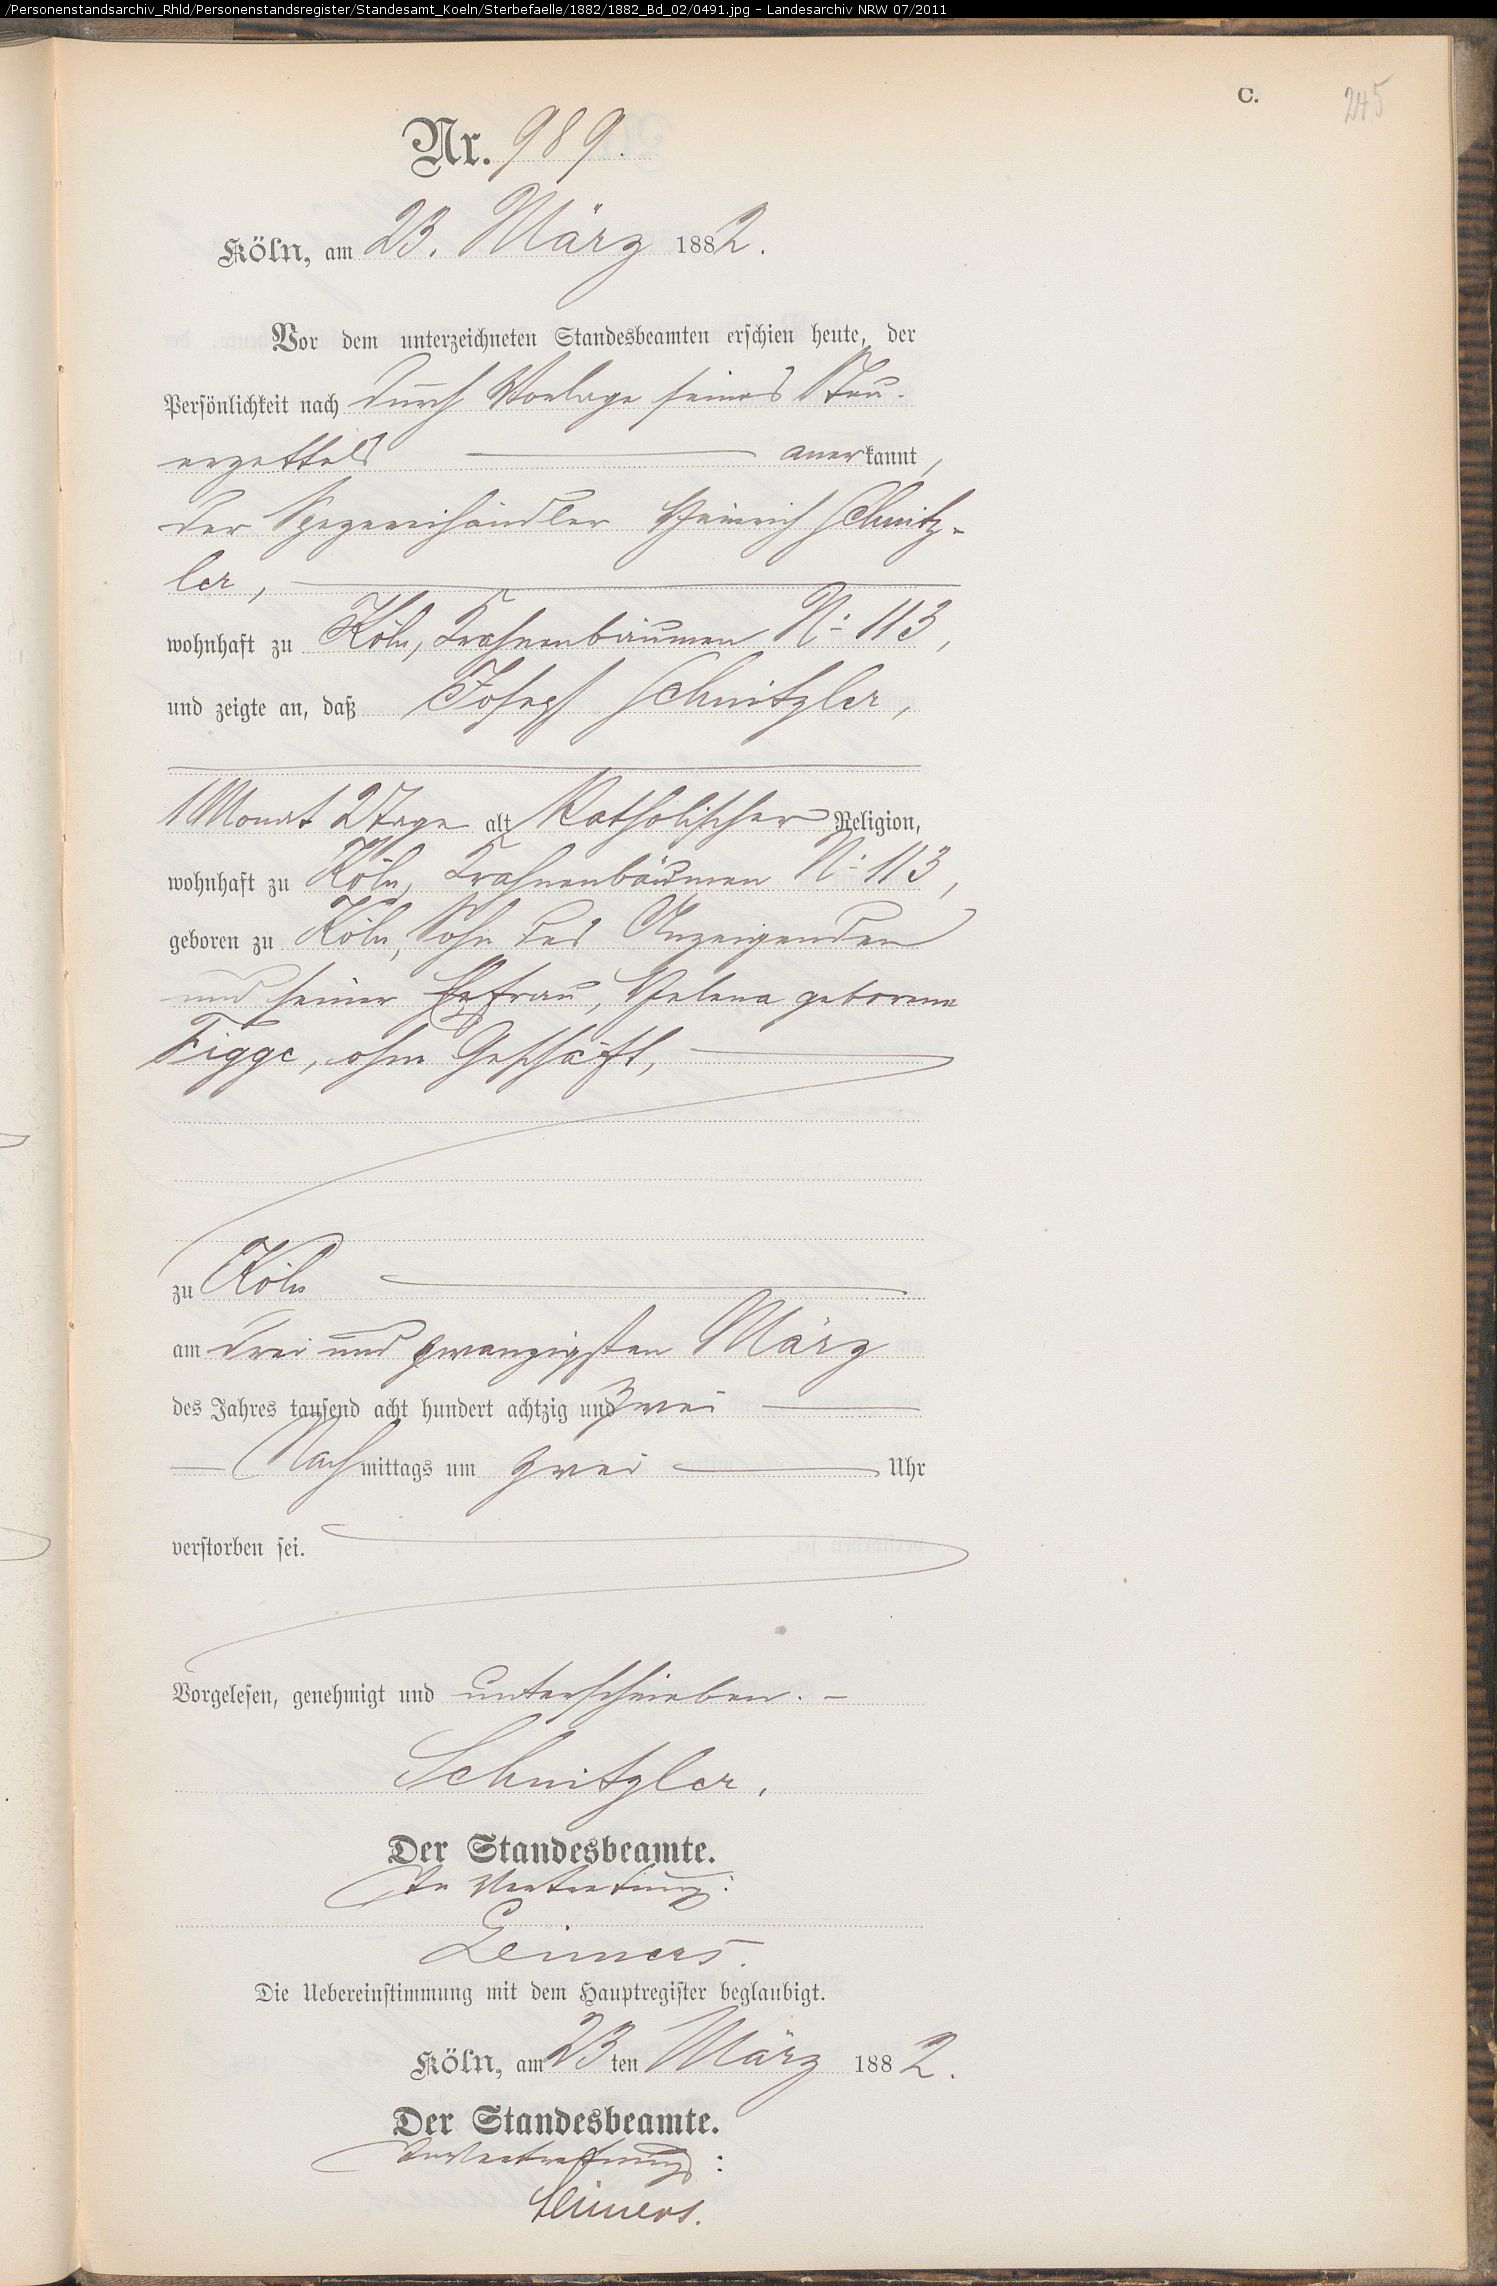 /Personenstandsarchiv_Rhld/Personenstandsregister/Standesamt_Koeln/Sterbefaelle/1882/1882_Bd_02/0491.jpg - Landesarchiv NRW 07/2011
C.
245
Nr. 989.
Köln, am 23. März 1882.
Vor dem unterzeichneten Standesbeamten erschien heute, der
Persönlichkeit nach durch Vorlage seines Steu-
erzettels anerkannt,
der Spezereihändler Heinrich Schnitz-
ler,
wohnhaft zu Köln, Krahnenbäumen No 113,
und zeigte an, daß Joseph Schnitzler,
1 Monat 2 Tage alt Katholischer Religion,
wohnhaft zu Köln, Krahnenbäumen No 113,
geboren zu Köln, Sohn des Anzeigenden
und seiner Ehefrau, Helena geborene
Figge, ohne Geschäft,
zu Köln
am drei und zwanzigsten März
des Jahres tausend acht hundert achtzig und zwei
Nachmittags um zwei Uhr
verstorben sei.
Vorgelesen, genehmigt und unterschrieben. -
Schnitzler.
Der Standesbeamte.
In Vertretung:
Leimers.
Die Uebereinstimmung mit dem Hauptregister beglaubigt.
Köln, am 23ten März 1882.
Der Standesbeamte.
In Vertretung:
Leimers.